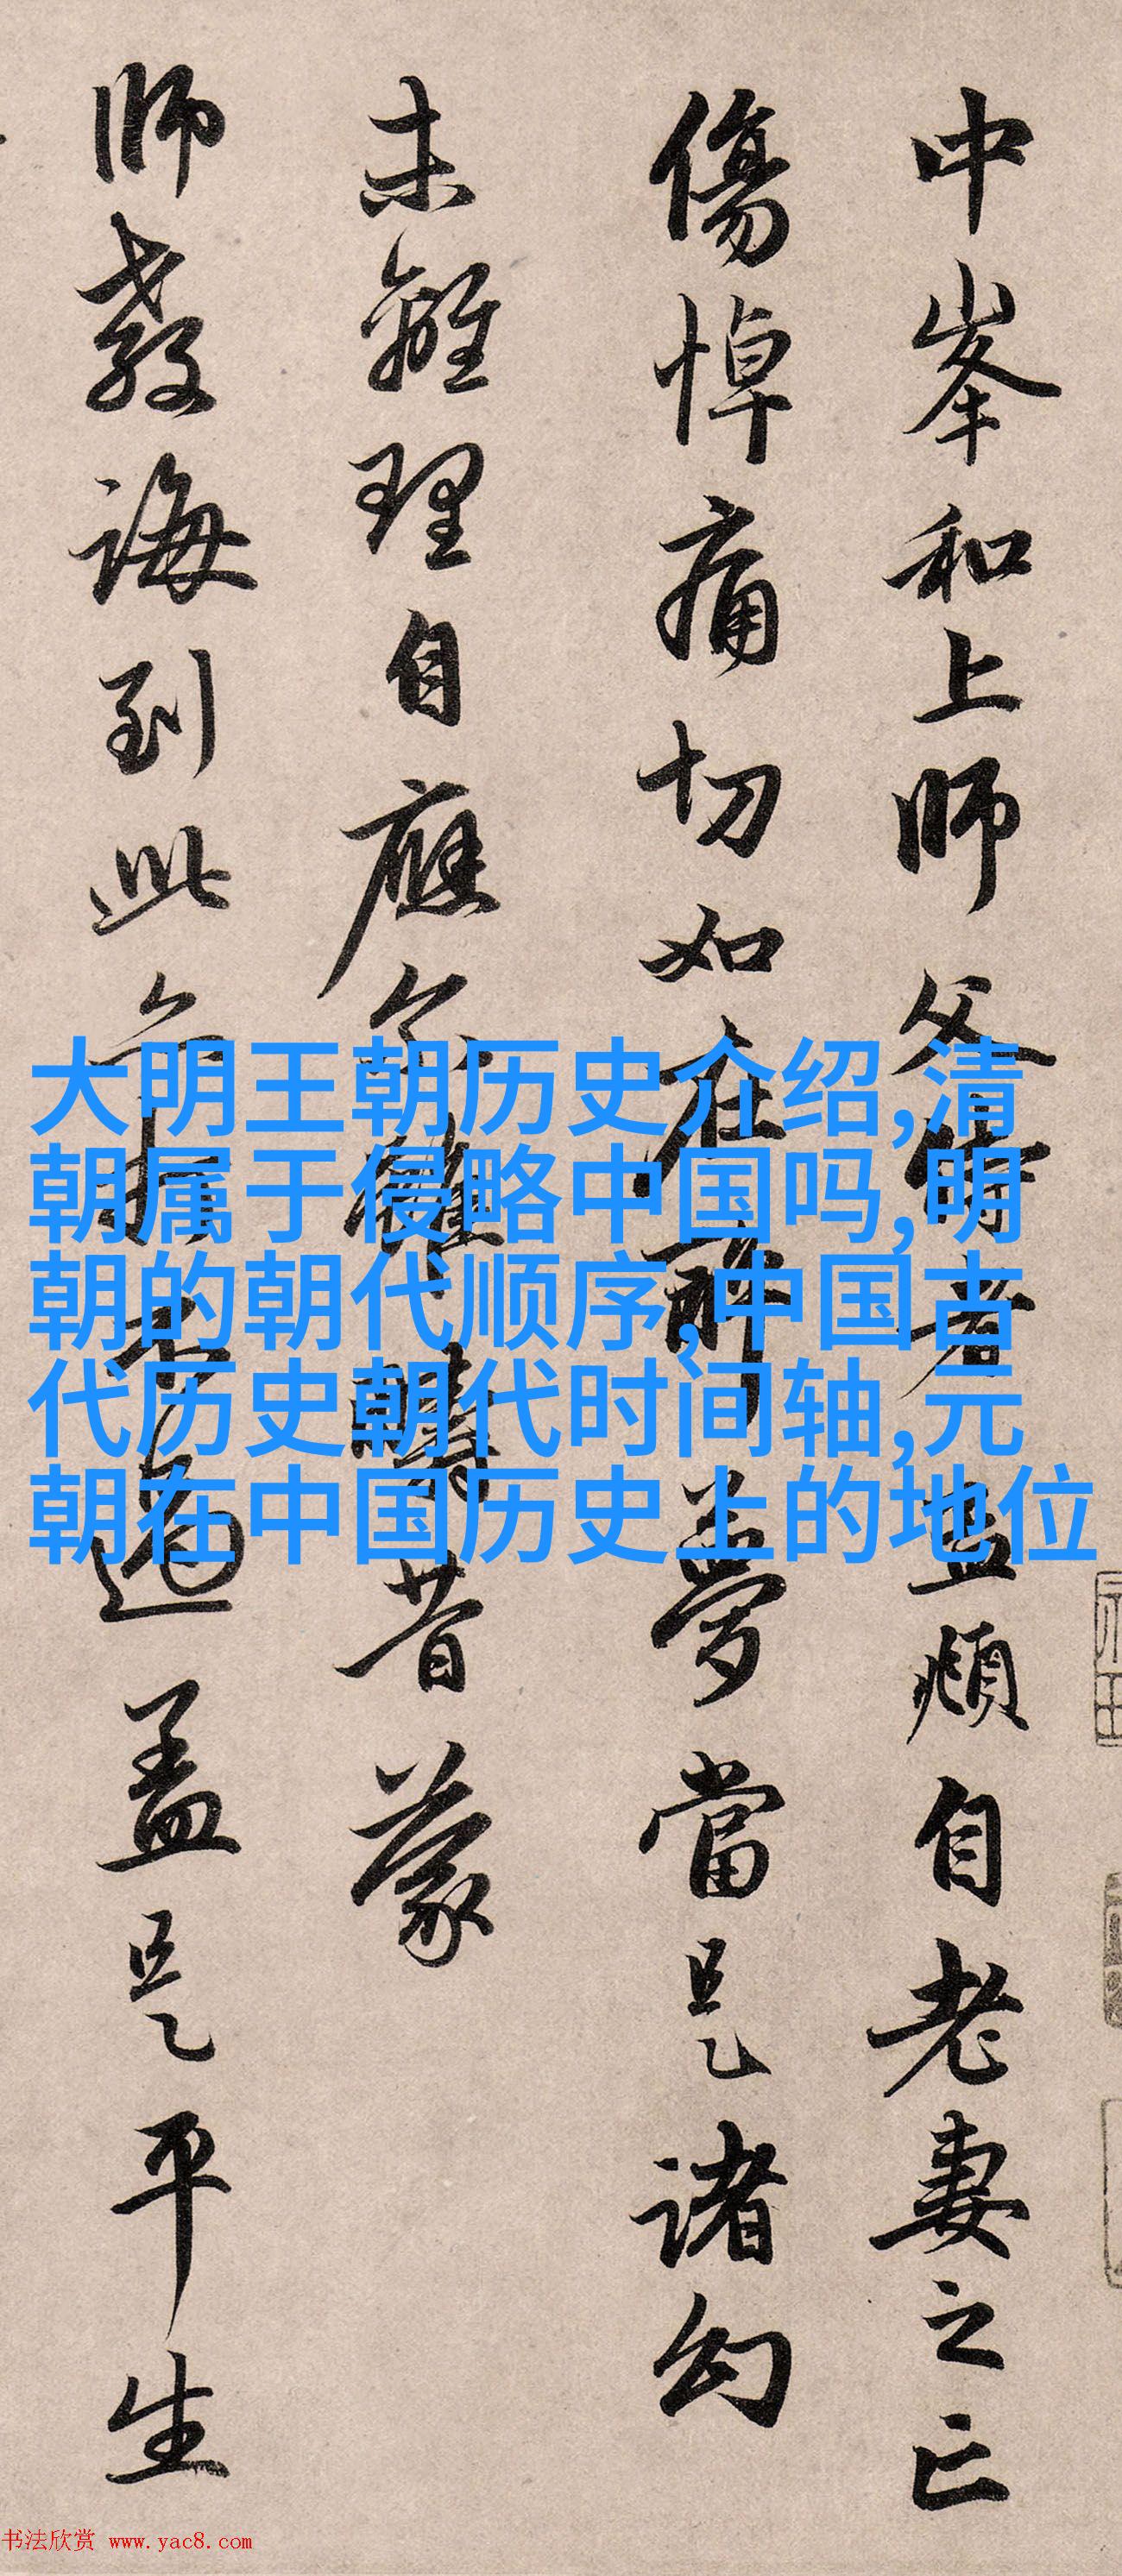 中峯和上師父侍者孟頫自老妻之亡
傷悼痛切如在醉夢當是諸幻
未離理自應尒雖疇昔蒙
師教誨到此亦打不過蓋是平生
大明王朝历史介绍,清
朝属于侵略中国吗,明
朝的朝代顺序,中国古
代历史朝代时间轴,元
朝在中国历史上的地位
书法欣赏 www.yac8.com